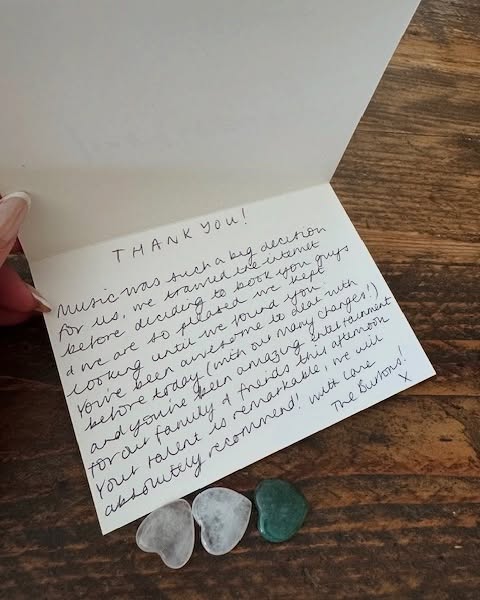 THANK YOU!
Music was such a big decision
for us, we trawled the internet
before deciding to book you guys
& we are so pleased we kept
looking until we found you.
You've been awesome to deal with
before today (with our many changes!)
and you've been amazing entertainment
for our family & freinds this afternoon
Your talent is remarkable, we will
absolutely recommend! with love
The Burtons!
X